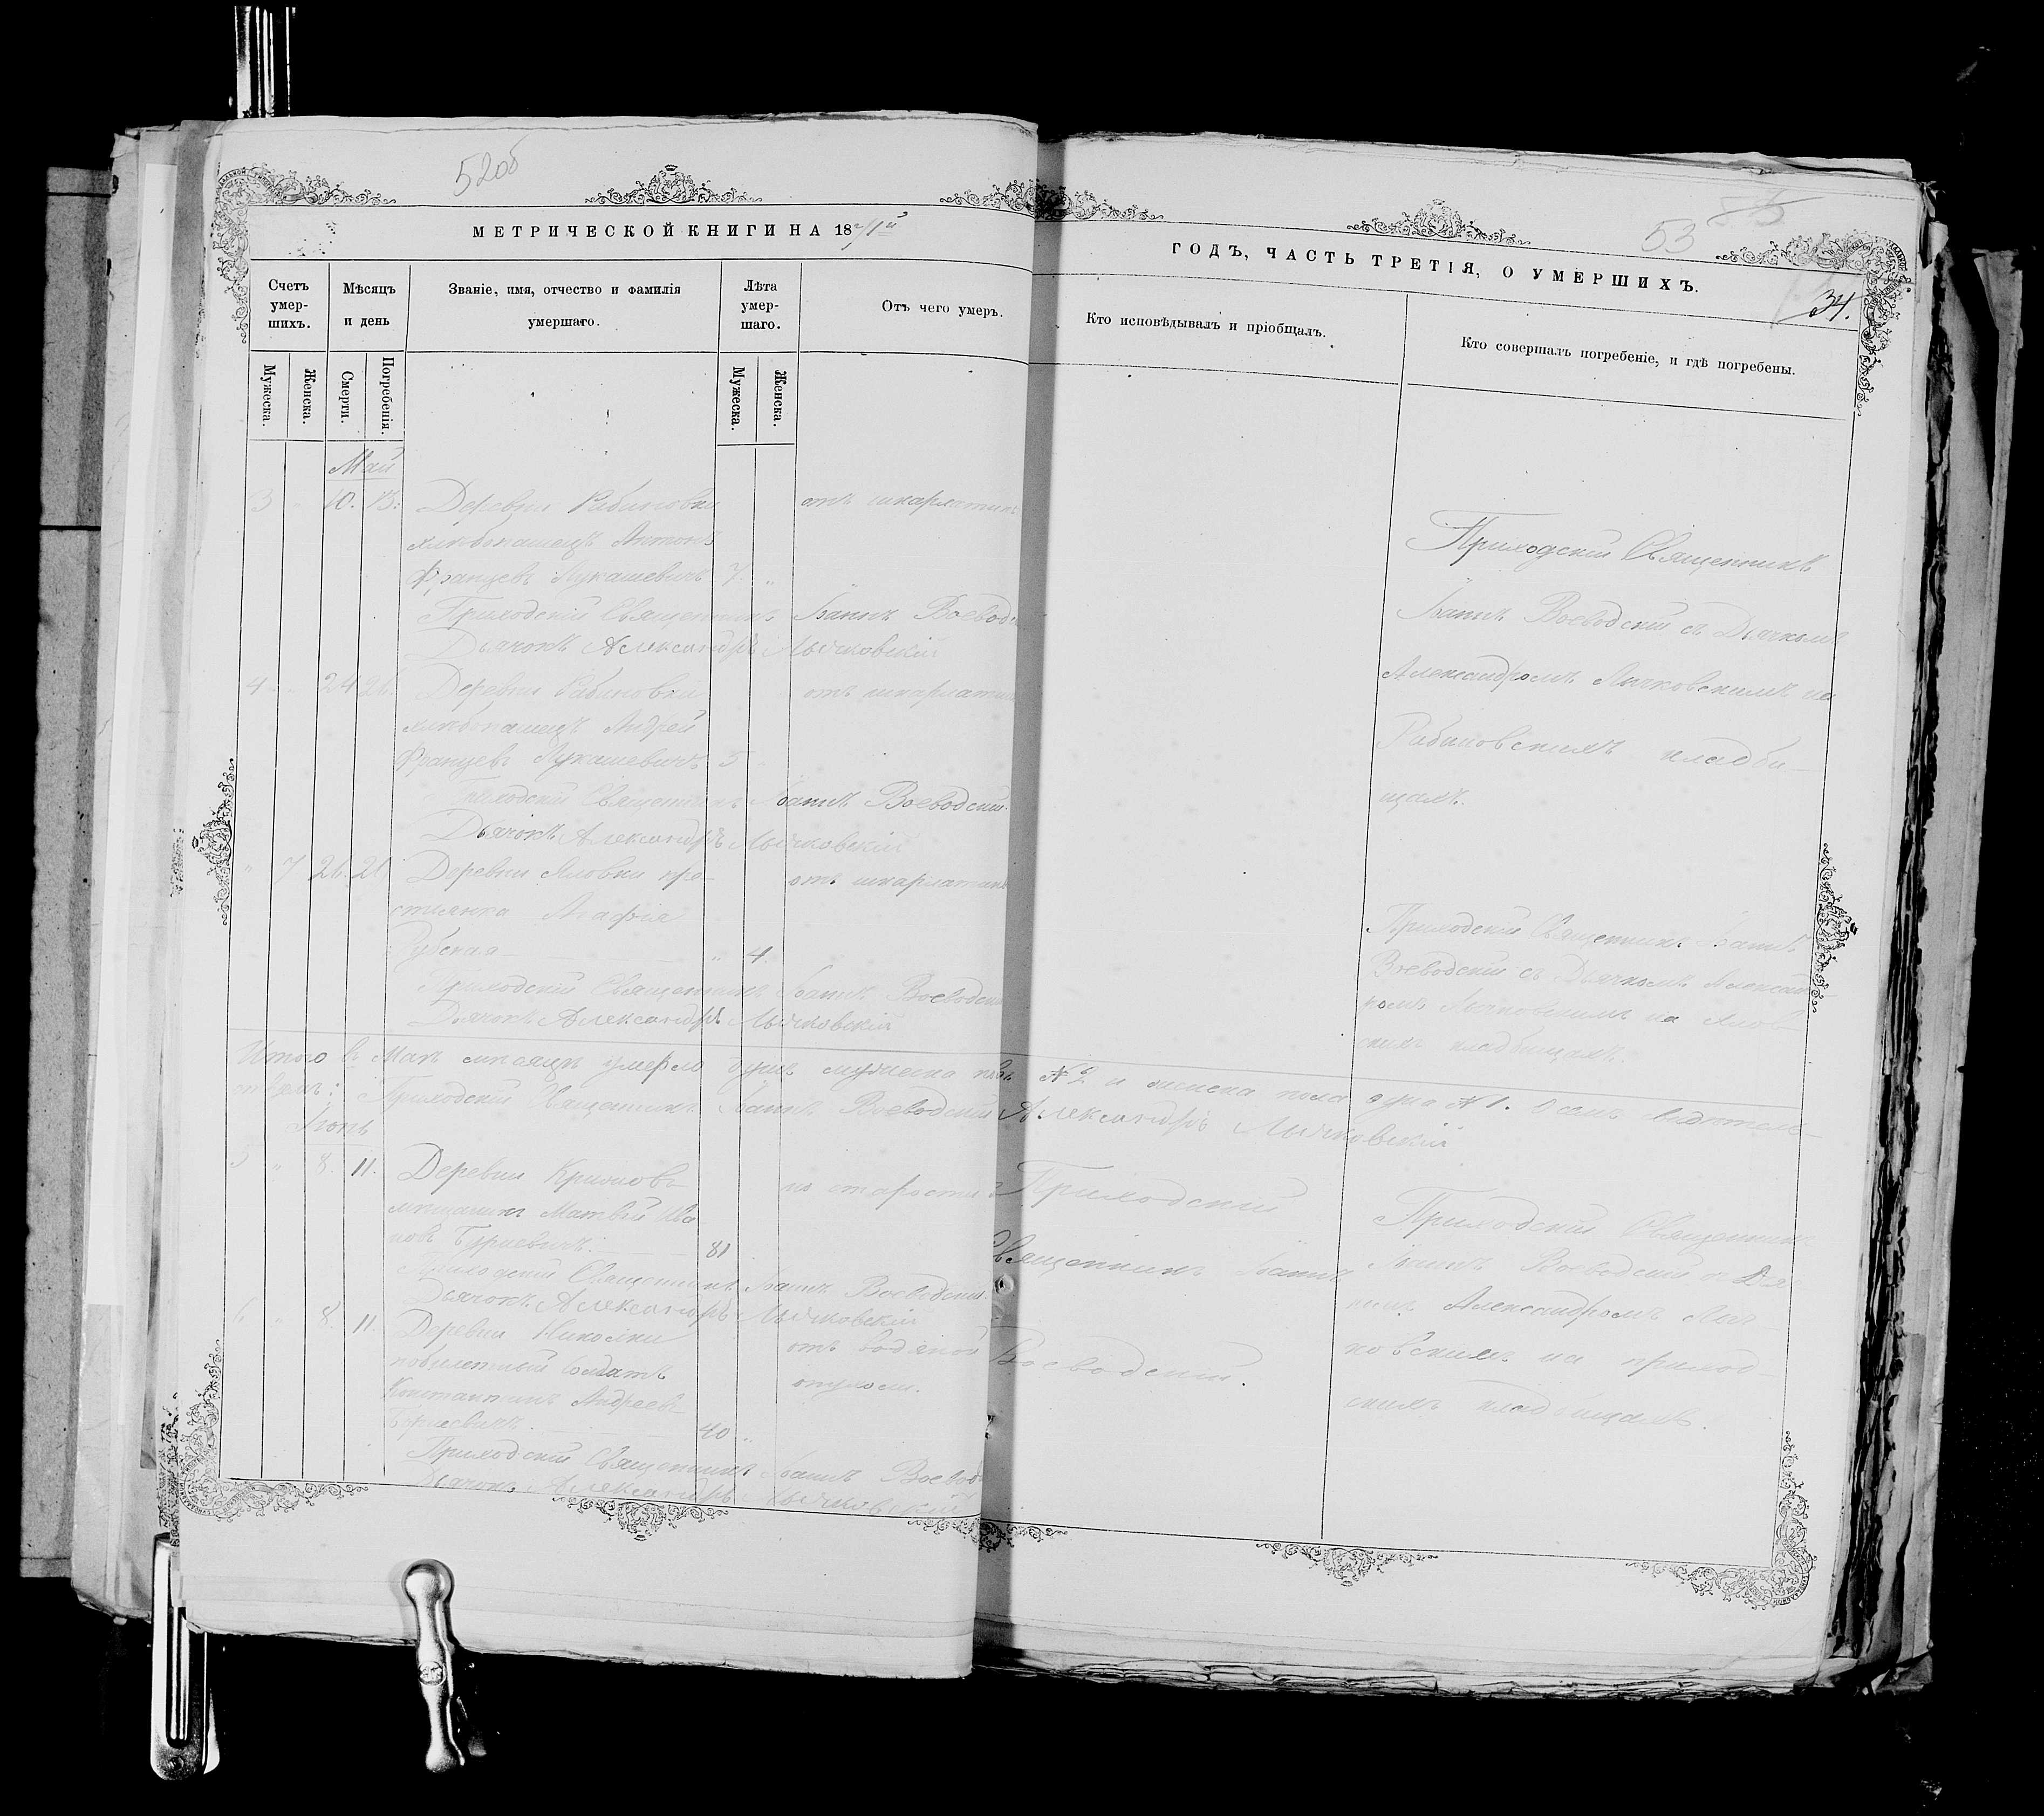 52об
85
53
МЕТРИЧЕСКОЙ КНИГИ НА 1871й
ГОДЪ, ЧАСТЬ ТРЕТІЯ, О УМЕРШИХЪ.
34.
Счетъ умер-шихъ.
Мѣсяцъ и день
Званіе, имя, отчество и фамилія умершаго.
Лѣта умер-шаго.
Отъ чего умеръ.
Кто исповѣдывалъ и пріобщалъ.
Кто совершалъ погребеніе, и гдѣ погребены.
Мужеска.
Женска.
Смерти.
Погребенія.
Мужеска.
Женска.
Май
3 10. 13. Деревни Рабиновки
хлѣбопашецъ Антонъ
Францевъ Лукашевичъ 7 „
отъ шкарлатины
Приходскій Священникъ Іоаннъ Воеводскій
Дьячокъ Александръ Лычковскій
Приходскій Священникъ
Іоаннъ Воеводскій съ Дьячкомъ
Александромъ Лычковскимъ на
Рабиновскихъ кладби-
щахъ.
4 „ 24 26. Деревни Рабиновки
хлѣбопашецъ Андрей
Францевъ Лукашевичъ 5
отъ шкарлатины
Приходскій Священникъ Іоаннъ Воеводскій.
Дьячокъ Александръ Лычковскій
„ 7 26. Деревни Яловки кре-
стьянка Агафія
Рубская „ 4
отъ шкарлатины
Приходскій Священникъ Іоаннъ Воеводскій
Дьячокъ Александръ Лычковскій
Приходскій Священникъ Іоаннъ
Воеводскій съ Дьячкомъ Александ-
ромъ Лычковскимъ на Ялов-
скихъ кладбищахъ.
Итого въ Маѣ мѣсяцѣ умерло душъ мужеска пола № 2 и женска пола душа № 1. О семъ свидѣтель-
ствуемъ: Приходскій Священникъ Іоаннъ Воеводскій Александръ Лычковскій
Іюнь
5 „ 8. 11. Деревни
мѣщанинъ Матвѣй Ива
новъ 81
отъ старости
Приходскій
Священникъ Іоаннъ
Воеводскій.
Приходскій Священникъ Іоаннъ Воеводскій.
Дьячокъ Александръ Лычковскій
Приходскій Священникъ
Іоаннъ Воеводскій съ Дья
комъ Александромъ Лыч
ковскимъ на приход-
скихъ кладбищахъ.
6 „ 8. 11. Деревни
Солдатъ
Константинъ Андреевъ
40 „
отъ водяной
опухоли.
Приходскій Священникъ Іоаннъ Воевод
Дьячокъ Александръ Лычковскій